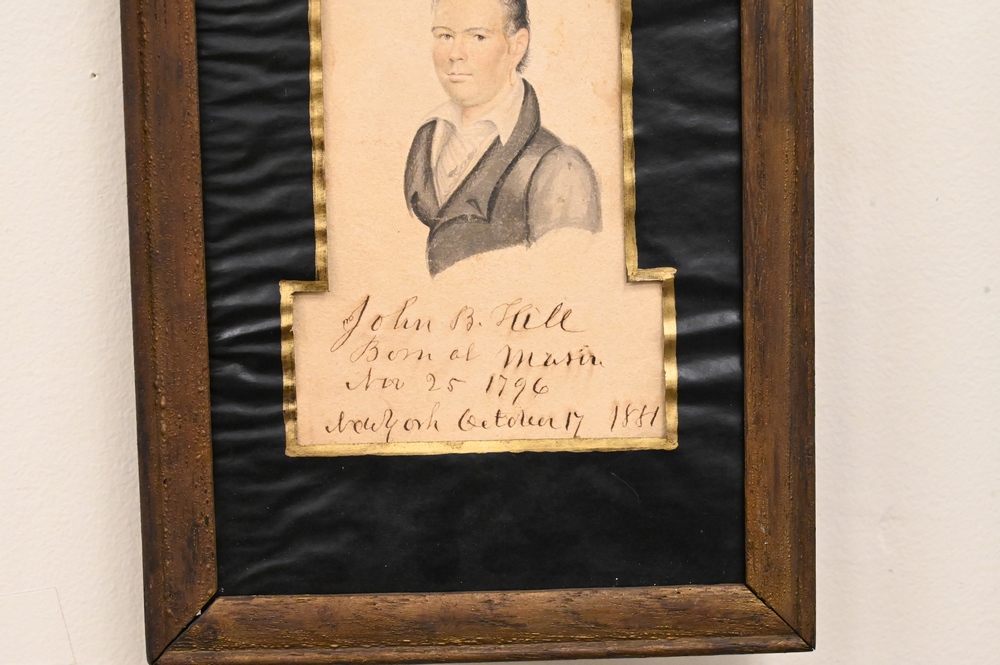 John B. Hill
Born at Mason
Nov 25 1796
New York October 17 1881